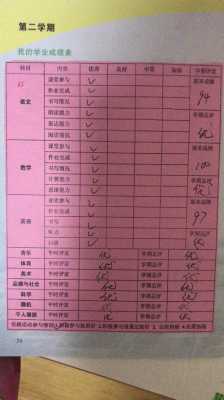 第二学期
我的学业成绩表
科目 内容 优秀 良好 中等 须努力 学期评定
语文 课堂参与 ✓ 期末成绩
作业完成 ✓ 94
书写情况 ✓
朗读能力 ✓ 学期总评
表达能力 ✓ 优
阅读情况 ✓
数学 课堂参与 ✓ 期末成绩
作业完成 ✓ 100
书写情况 ✓
计算能力 ✓ 学期总评
思维能力 ✓ 优
英语 课堂参与 ✓ 期末成绩
作业完成 ✓ 97
书写 ✓
听力 ✓ 学期总评
口语 ✓ 优
音乐 平时评定 优 学期总评 优
体育 平时评定 优 学期总评 优
美术 平时评定 优 学期总评 优
品德与社会 平时评定 优 学期总评 优
科学 平时评定 优 学期总评 优
微机 平时评定 优 学期总评 优
平时评定 优 学期总评 优